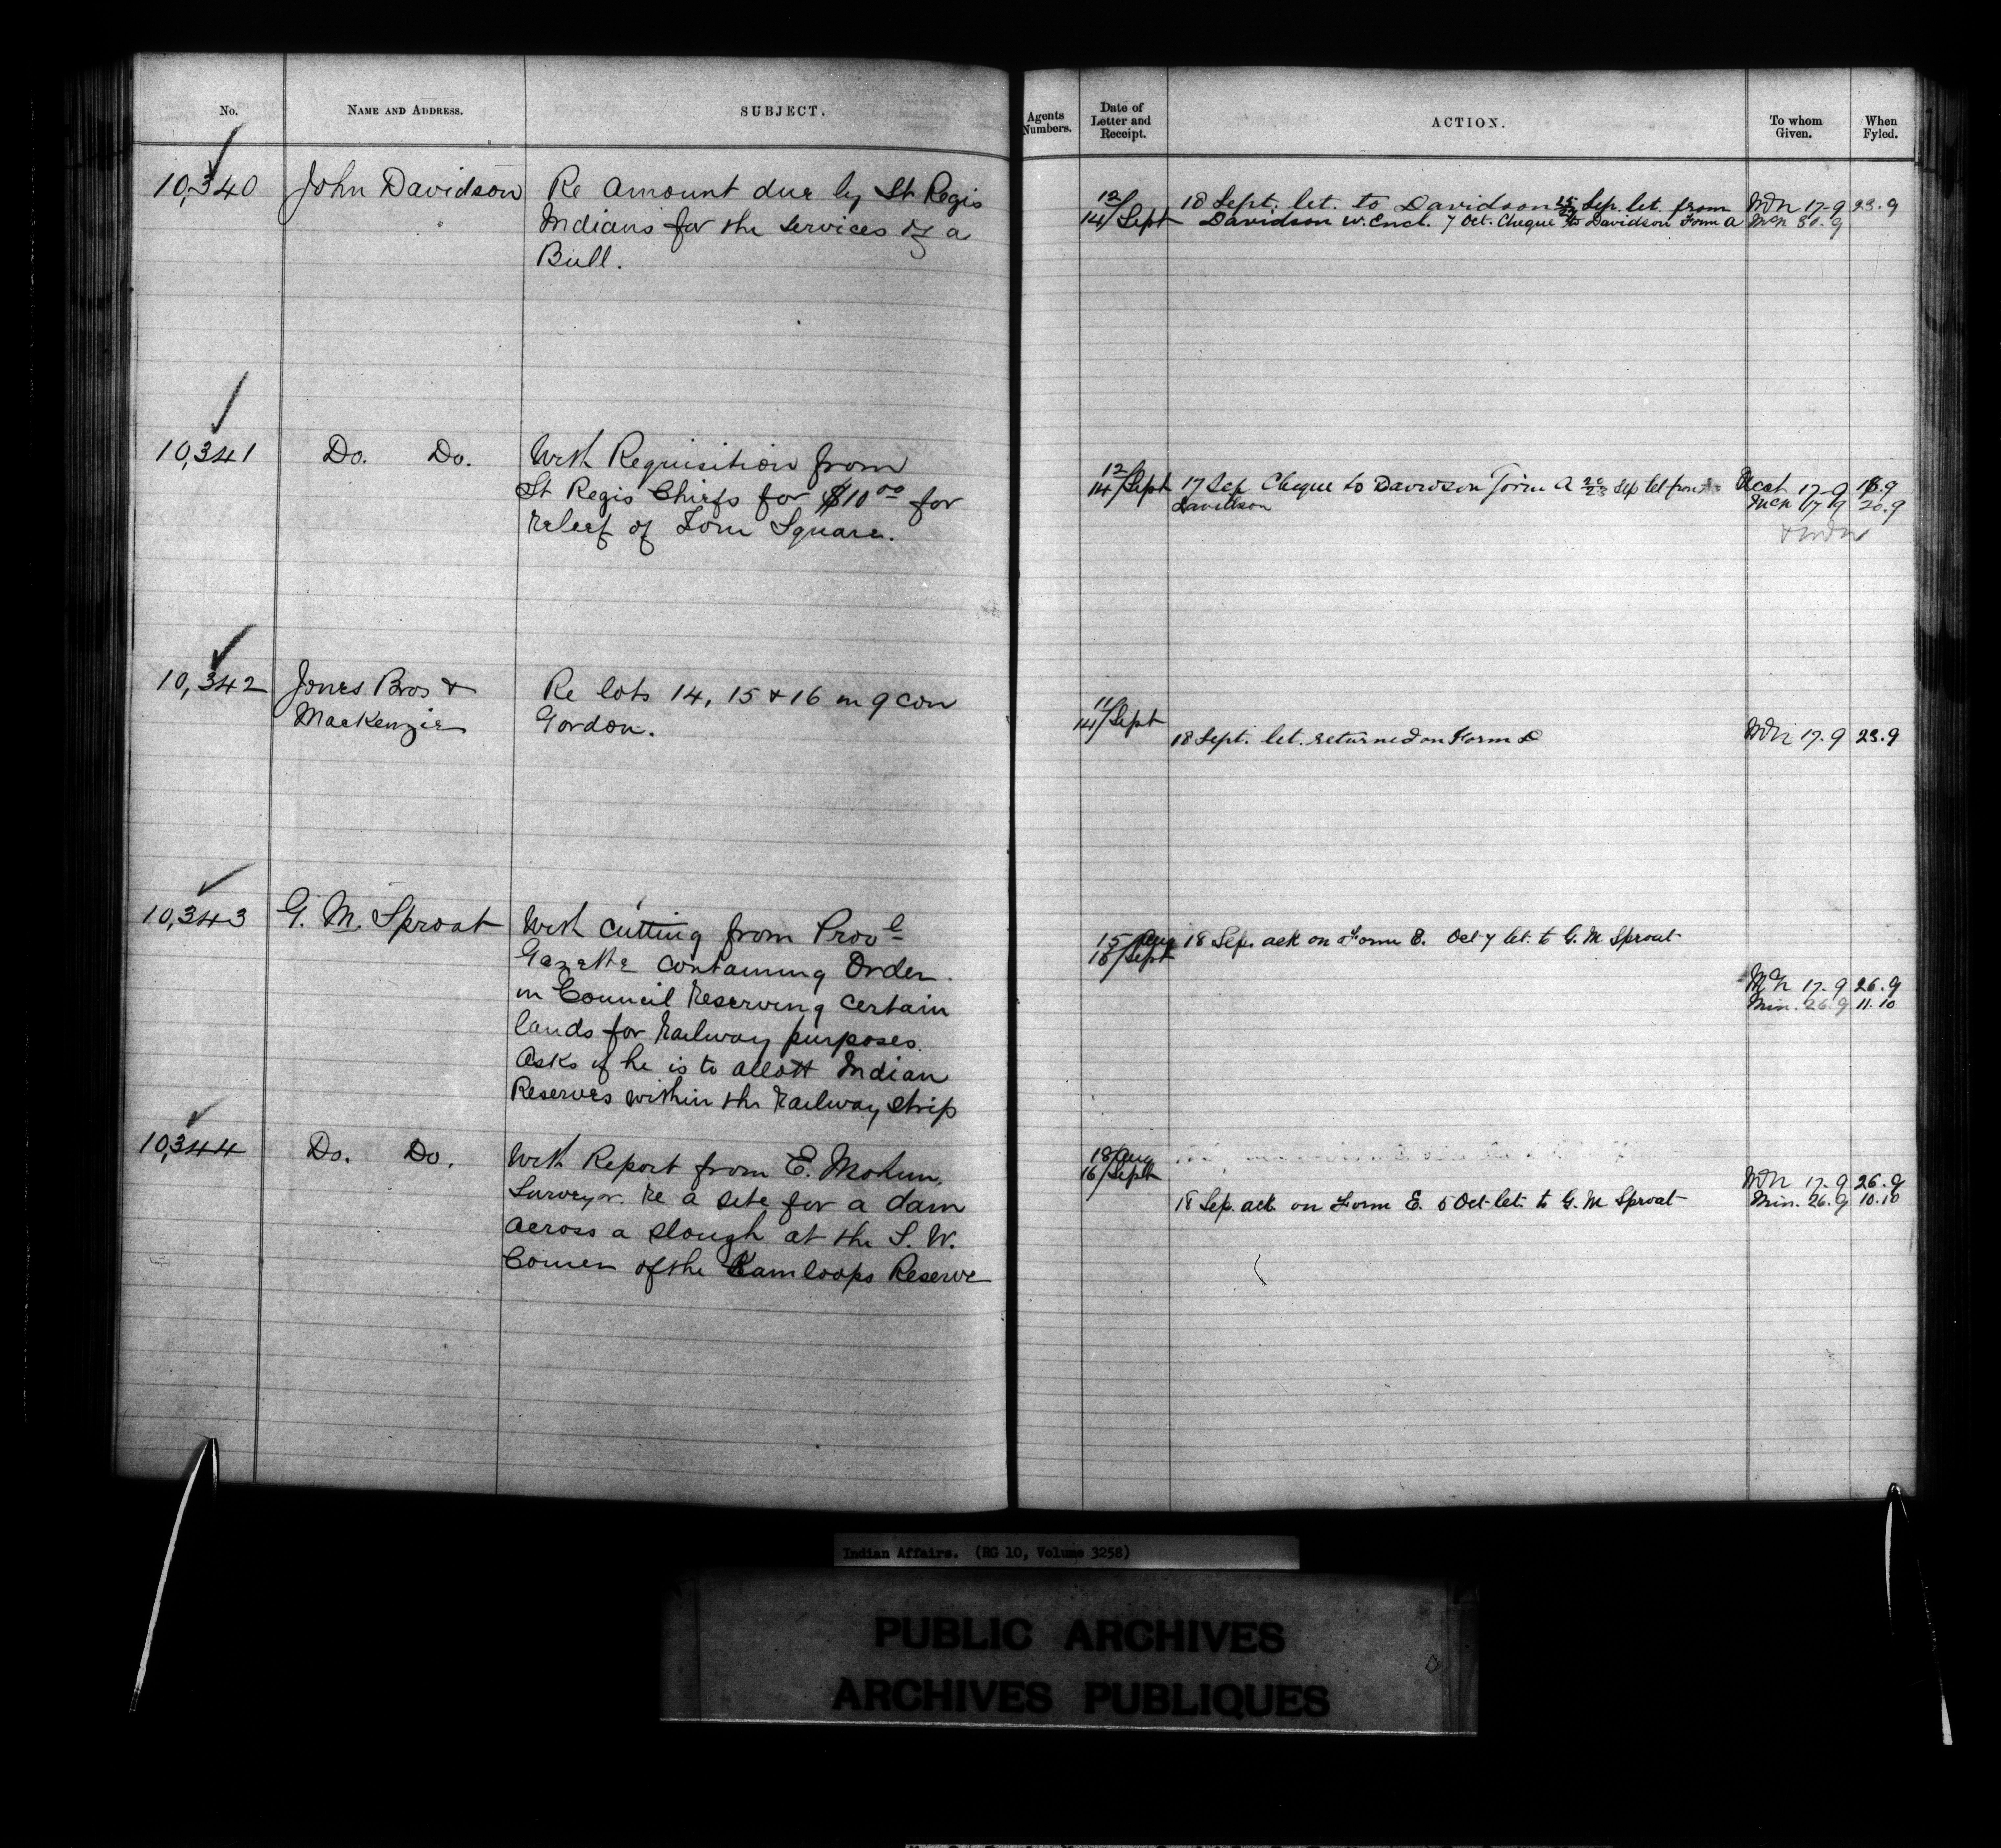 No.
NAME AND ADDRESS.
SUBJECT.
10,340
John Davidson
Re Amount due by St Regis
Indians for the services of a
Bull.
10,341
Do. Do.
With Requisition from
St Regis Chiefs for $10 00 for
relief of Tom Square.
10,342
Jones Bros &
MacKenzie
Re lots 14, 15 & 16 in 9 con
Gordon.
10,343
G. M. Sproat
With cutting from Provl
Gazette containing Order
in Council reserving certain
lands for railway purposes.
Asks if he is to allott Indian
Reserves within the railway strip
10,344
Do. Do.
With Report from E. Mohun,
Surveyor. re a site for a dam
across a slough at the S. W.
Corner of the Kamloops Reserve
Agents
Numbers.
Date of
Letter and
Receipt.
ACTION.
To whom
Given.
When
Fyled.
12
14/Sept
18 Sept. let. to Davidson Sep. let. from
Davidson w. Encl. 7 Oct. Cheque to Davidson Form A
17-9 23.9
12
14/Sept
17 Sep Cheque to Davidson Form A Sep let from
Davidson
Acct 17-9 18.9
17 9 20.9
11
14/Sept
18 Sept. let. returned on Form D
17.9 23.9
15/Aug
16/Sept
18 Sep. ack on Form E. Oct 7 let. to G. M Sproat
17-9 26.9
Min. 26.9 11.10
18/Aug
16/Sept
18 Sep. ack. on Form E. 5 Oct let. to G. M Sproat
17-9 26.9
Min. 26.9 10.10
Indian Affairs. (RG 10, Volume 3258)
PUBLIC ARCHIVES
ARCHIVES PUBLIQUES